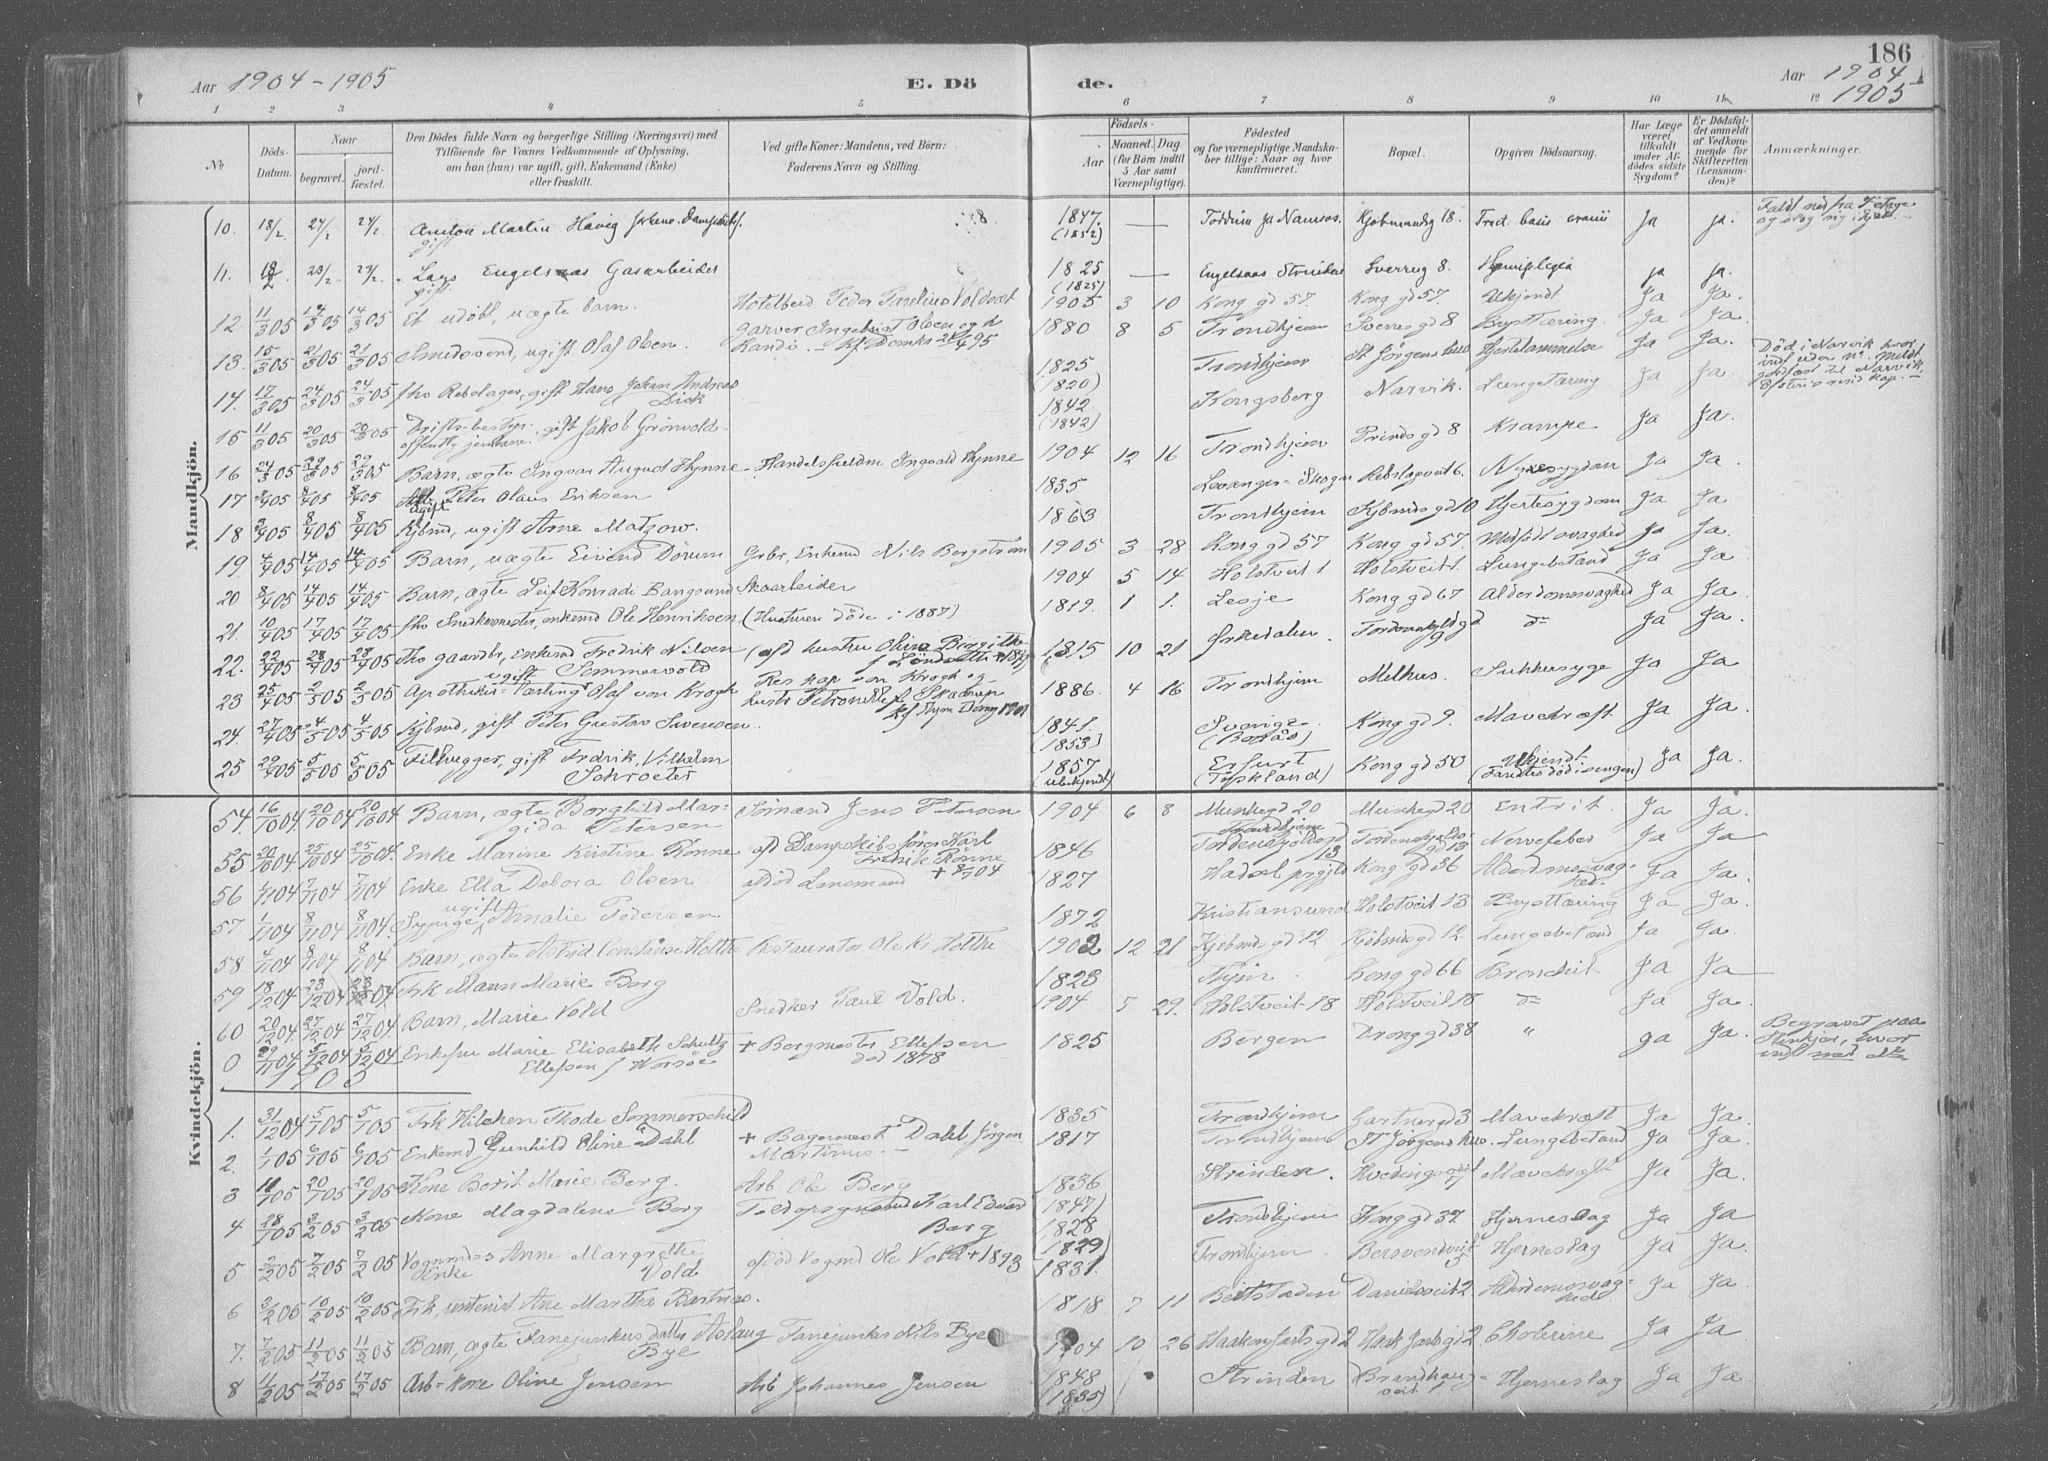 186
Aar 1904-1905 E. Dö de. Aar 1904 1905
1 2 3 4 5 6 7 8 9 10 11 12
№ Döds-Datum. Naar begravet. jord-fæstet.
Den Dödes fulde Navn og borgerlige Stilling (Næringsvei) med Tilföiende for Voxnes Vedkommende af Oplysning, om han (hun) var ugift, gift, Enkemand (Enke) eller fraskilt.
Ved gifte Koner: Mandens, ved Börn: Faderens Navn og Stilling.
Födsels- Aar Maaned. Dag (for Börn indtil 5 Aar samt Værnepligtige).
Födested og for værnepligtige Mandskaber tillige: Naar og hvor konfirmeret.
Bopæl. Opgiven Dödsaarsag.
Har Læge været tilkaldt under Afdödes sidste Sygdom?
Er Dödsfaldet anmeldt af Vedkommende for Skifteretten (Lensmanden)?
Anmærkninger.
Mandkjön.
10. 18/2. 24/2 24/2 Anton Martin Havig gift 1847. (1852) Kjøbmandsg 18. Fract. basis cranii Ja ja.
11. 23/2. 23/2. Lars Engelsaas Gasarbeider gift. 1825 (1825) Engelsaas Strinden Sverresg 8. Hemiplegia ja ja.
12 11/3 05 14/3 05 14/3 05 Et udöbt, uægte barn. 1905 3 10 Kong gd 57. Kong gd 57. Ukjendt Ja Ja.
13. 15/3 05 21/3 05 21/3 05 Smedsvend, ugift Olaf Olsen. Garver Ingebrigt Olsen 1880 8 5 Trondhjem Sverres gd 8 Brysttæring. Ja Ja.
14. 17/3 05 24/3 05 24/3 05 fhv Rebslager, gift Hans Johan Andreas Dick 1825 (1820) Trondhjem St Jörgens hus Hjertelammelse Ja Ja.
Död i Narvik hvor
15 11/3 05 20/3 05 20/3 05 gift Jakob Grönvold 1842 (1842) Kongsberg Narvik. Lungetæring Ja Ja.
16 24/3 05 29/3 05 29/3 05 Barn, ægte Ingvar August Hynne Ingvald Hynne 1904 12 16 Trondhj Prinds gd 8 Krampe Ja Ja.
17 2/4 05 8/4 05 8/4 05 Peter Olaus Eriksen 1835 Levanger-Skogn Rebslagerveit 6. Nyresygdom Ja Ja.
18 3/4 05 8/4 05 8/4 05 Kjbmd, ugift Arne Matzow. 1863 Trondhjem Kjbmds gd 10 Hjertesygdom Ja Ja.
19. 4/4 05 14/4 05 14/4 05 Barn, uægte Eivind Dörum Grbr, Enkemd Nils Bergström 1905 3 28 Kong gd 57 Kong gd 57. Medfödt svaghed Ja Ja.
20 8/4 05 14/4 05 14/4 05 Barn, ægte Leif Konradi Bangsund Skoarbeider 1904 5 14 Holstveit 1 Holstveit 1. Lungebetænd Ja Ja.
21. 10/4 05 17/4 05 17/4 05 fhv Snedkermester, enkemd Ole Henriksen. (Hustruen döde i 1887) 1819. 1 1. Lesje Kong gd 67 Alderdomsvaghed Ja Ja.
22. 22/4 05 28/4 05 28/4 05 fhv gaardbr, Enkemd Fredrik Nilsen Sommervold 1815 10 21 Ørkedalen. Ja Ja.
23 25/4 05 2/5 05 2/5 05 Apotheker-Lærling ugift Olaf von Krogh Res kap von Krogh og 1886. 4 16 Trondhjem Melhus. Sukkersyge Ja Ja.
24. 27/4 05 4/5 05 4/5 05 Kjbmd, gift Peter Gustav Svensen. 1841. (1853) Sverige (Borås) Kong gd 9. Mavekræft. Ja Ja.
25 29/4 05 5/5 05 5/5 05 Filhugger, gift Fredrik, Vilhelm Schroeter 1857 (ubekjendt) Erfurt (Tyskland) Kong gd 50 Ukjendt (Fandtes död i sengen) Ja Ja.
Kvindekjön.
54. 16/10 04. 20/10 04 20/10 04 Barn, ægte Borghild Margida Petersen Sömand Jens Petersen 1904 6 8 Munkegd 20 Munkegd 20 Enterit. Ja Ja.
55 20/10 04. 25/10 04 25/10 04. Enke Marine Kristine Rönne afd Dampskibsförer Karl Fredrik Rönne 1846 Trondhjem Nervefeber Ja Ja
56 7/11 04 7/11 04 Enke Ella Debora Olsen afdöd Lensmand 1827 Hadsel prgjld Kong gd 36 Alderdomsvaghed. Ja Ja.
57. 1/11 04 8/11 04 8/11 04 Sypige, ugift Amalie Pedersen 1872 Kristiansund Holstveit 13 Brysttæring Ja Ja.
58 4/11 04 8/11 04 8/11 04 Barn, ægte Astrid Constanse Holthe Restauratør Ole Kr Holthe 1902 12 21 Kjøbmd gd 12 Kjøbmd gd 12. Lungebetænd Ja Ja.
59 18/12 04 23/12 04 23/12 04 Frk Maren Marie Berg 1823 Kong gd 66 Bronchit Ja Ja.
60 20/12 04 27/12 04 27/12 04. Barn, Marie Vold Snedker Paul Vold. 1904 5 29. Holstveit 18 Holstveit 18 Ja Ja.
0 29/11 04 5/12 04 5/12 04 Enkefru Marie Elisabeth Schultz Ellefsen + Bergmester Ellefsen död 1878 1825 Bergen Drong gd 38 " Ja Ja.
Begravet paa Stenkjær, hvor
1905
1. 31/12 04 5/1 05 5/1 05 Frk Hilchen Thode Sommerschild 1835 Trondhjem Gartnergd 3 Mavekræft Ja Ja.
2. 1/1 05 6/1 05 6/1 05 Enkemd Gunhild Oline Dahl + Bagermest Dahl Jörgen Martinus. 1817 Trondhjem St Jörgens hus. Lungebetænd Ja Ja.
3 11/1 05 20/1 05 20/1 05 Kone Berit Marie Berg. Arb Ole Berg 1836 (1847) Strinden. Mavekræft Ja Ja.
4 28/1 05 3/2 05 3/2 05 Kone Magdalene Berg Toldopsynsmd Karl Edvard Berg 1828 (1829) Trondhjem Kong gd 37. Hjerneslag Ja Ja
5 2/2 05 7/2 05 7/2 05 Vognmds Enke Anne Margrethe Vold afdöd Vogmd Ole Vold + 1893 1831. Trondhjem. Bersvendveit 5 Hjerneslag Ja Ja.
6 3/2 05 10/2 05 10/2 05 Frk, rentenist Ane Martha Bartnæs. 1818 7 11 Beitstaden Danielsveit 2 Alderdomsvaghed Ja Ja.
7. 7/2 05 11/2 05 11/2 05 Barn, ægte Fanejunkers datter Aslaug Bye Fanejunker Nils Bye 1904 10 26 Haakon Jarls gd 2 Haak Jarls gd 2. Cholerine Ja Ja.
8 11/2 05 17/2 05 17/2 05 Arb-kone Oline Jensen Arb Johannes Jensen 1848 (1835) Strinden Brandhaugveit 1 Hjerneslag Ja Ja.